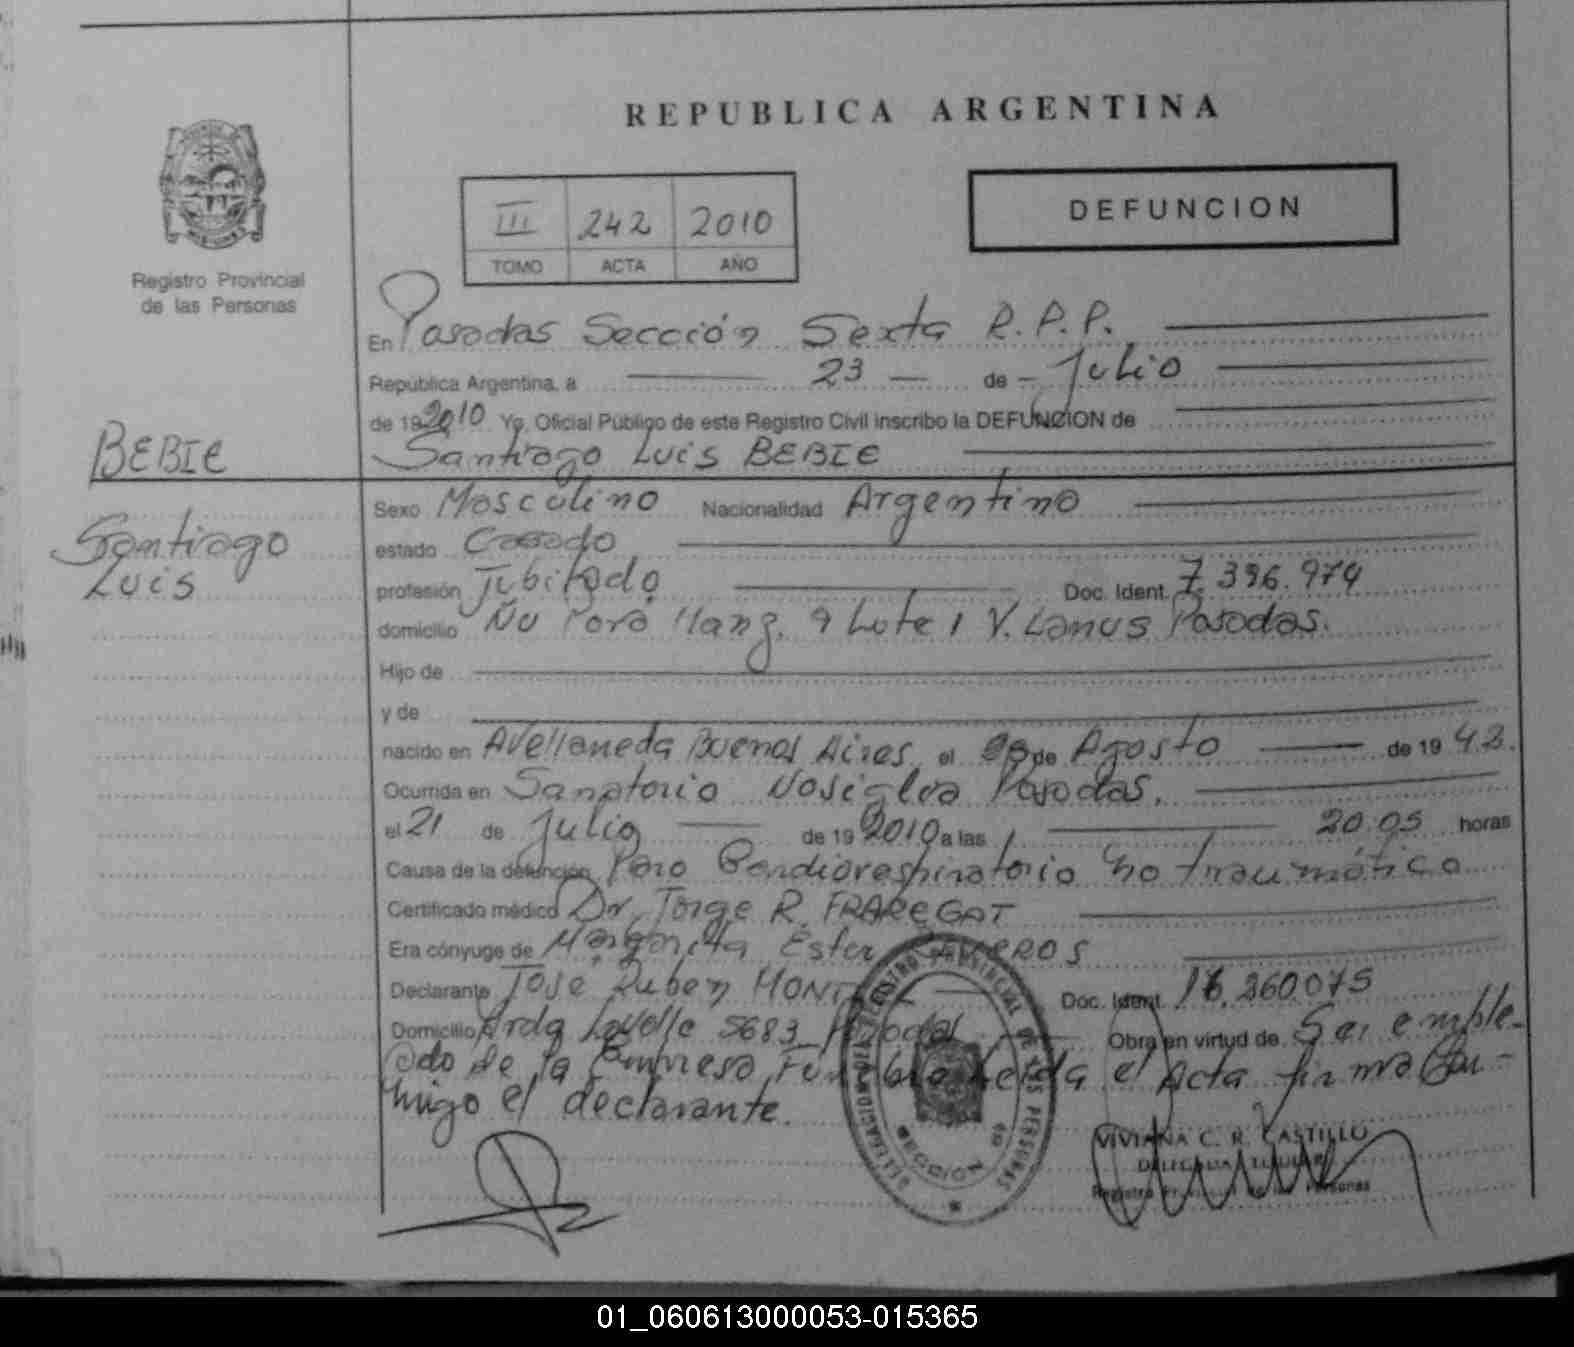 REPUBLICA ARGENTINA
III 242 2010
TOMO ACTA AÑO
DEFUNCION
Registro Provincial
de las Personas
En Posadas Sección Sexta R.P.P.
República Argentina, a 23 de Julio
de 19 2010 Yo, Oficial Público de este Registro Civil inscribo la DEFUNCION de
BEBIE
Santiago Luis BEBIE
Santiago
Luis
Sexo Masculino Nacionalidad Argentino
estado Casado
profesión Jubilado Doc. Ident. 7.396.974
domicilio Ñu Porá Manz. 9 Lote 1 V. Lanus Posadas.
Hijo de
y de
nacido en Avellaneda Buenos Aires el de Agosto de 19 43.
Ocurrida en Sanatorio Nosiglia Posadas.
el 21 de Julio de 19 2010 a las 20.05 horas
Causa de la defunción Paro Cardiorespiratorio no traumático
Certificado médico Dr. Jorge R. FRAREGAT
Era cónyuge de Margarita Ester
Declarante José Ruben Doc. Ident. 16.360075
Domicilio Avda Lavalle 5683 Posadas Obra en virtud de Ser emple-
ado de la Empresa Leída el Acta firma Con-
migo el declarante.
DELEGACION REGISTRO PROVINCIAL DE LAS PERSONAS
SECCION 6º
VIVIANA C. R. CASTILLO
DELEGADA TITULAR
Registro Provincial de las Personas
01_060613000053-015365